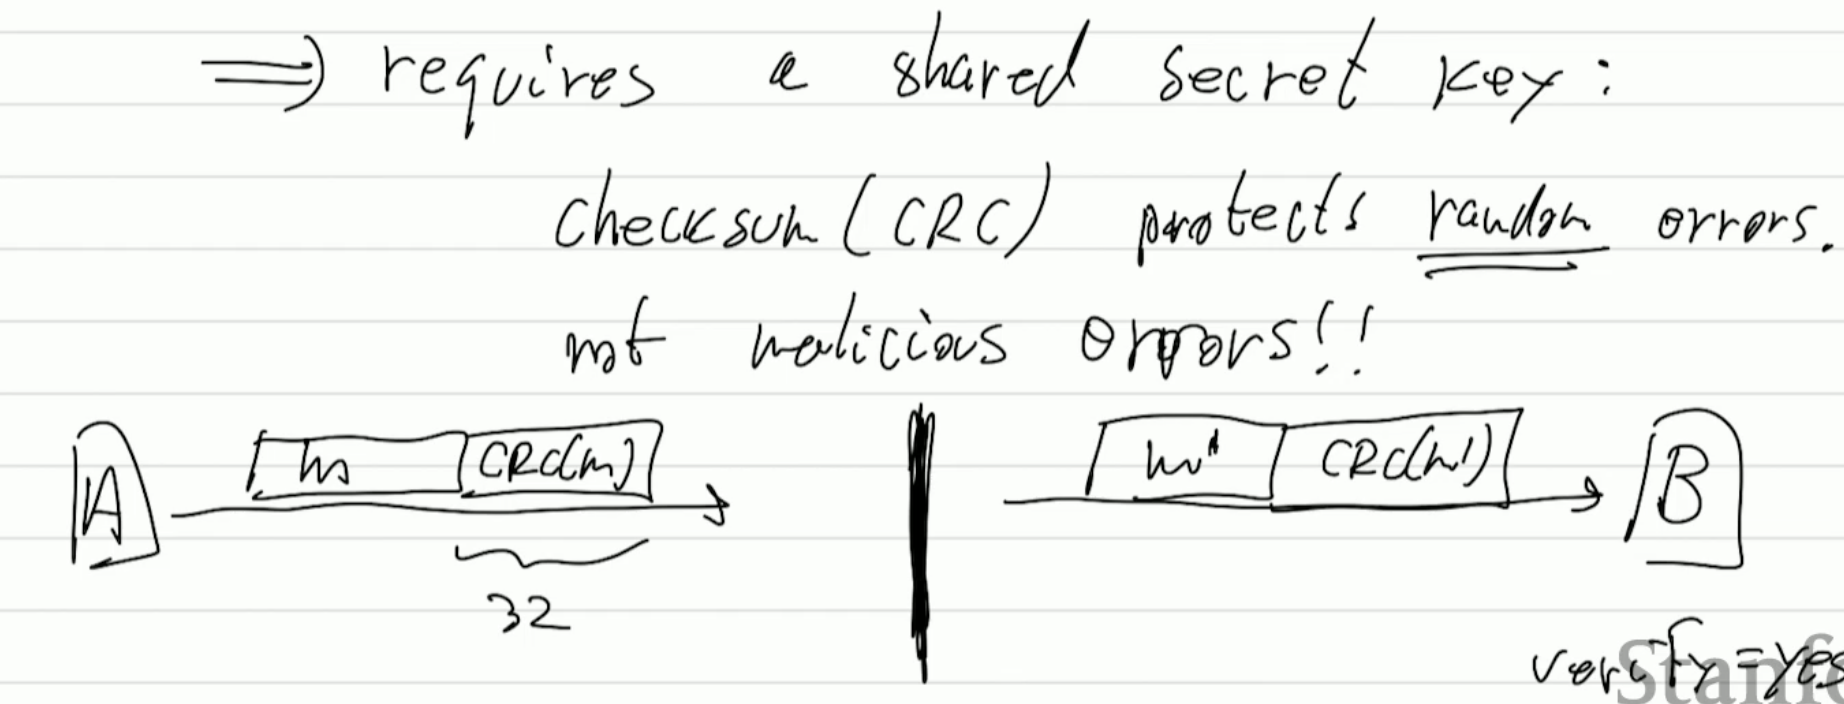 ⇒ requires a shared secret key:
checksum (CRC) protects random errors.
not malicious errors!!
A m CRC(m) m' CRC(m') B
32
verify = yes
Stanfo